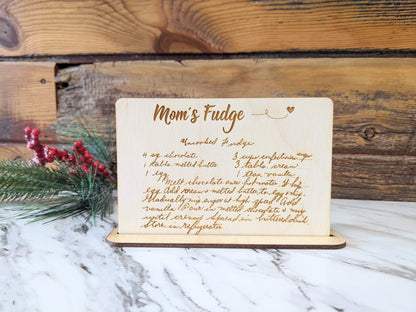 Mom's Fudge
Uncooked Fudge
4 sq chocolate 3 cups confectioners sugar
1 table. melted butter 3 table. cream
1 egg 1 teas. vanilla
Melt chocolate over hot water. Beat
egg. Add cream & melted butter to egg mix.
Gradually mix sugar at high speed. Add
vanilla. Pour in melted chocolate & mix
until creamy. Spread in buttered dish.
Store in refrigerator.